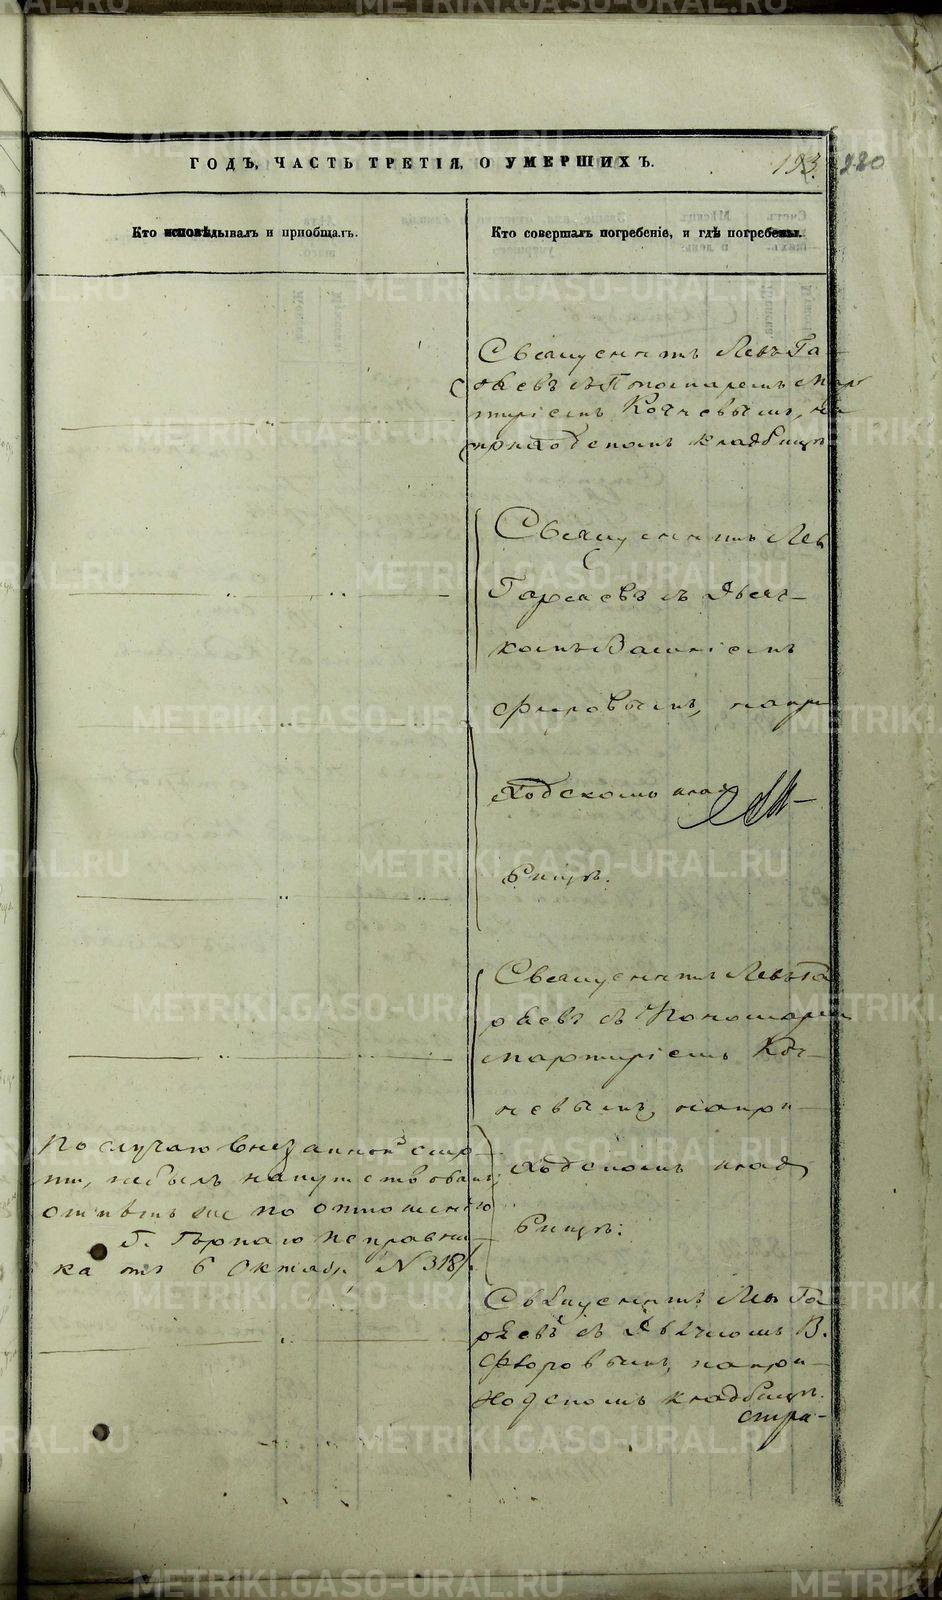 ГОДЪ, ЧАСТЬ ТРЕТІЯ, О УМЕРШИХЪ.
193. 220
Кто исповѣдывалъ и пріобщалъ.
Кто совершалъ погребеніе, и гдѣ погребены.
Священникъ Левъ Га-
ряевъ съ Пономаремъ Мар
тиріемъ Кочневымъ, на
приходскомъ кладбищѣ
Священникъ Левъ
Гаряевъ съ Дьяч-
комъ Василіемъ
Флоровымъ, на при
ходскомъ клад
бищѣ.
Священникъ Левъ Га
ряевъ съ Пономаремъ
Мартиріемъ Коч-
невымъ, на при-
ходскомъ клад
бищѣ:
По случаю внезапной смер-
ти, небылъ напутствованъ;
отпѣтъ же по отношенію
Г. Горнаго Исправни-
ка отъ 6 Октября №318/.
Священникъ Левъ Га
ряевъ съ Дьячкомъ В.
Флоровымъ, на при-
ходскомъ кладбищѣ.
стра-
METRIKI.GASO-URAL.RU